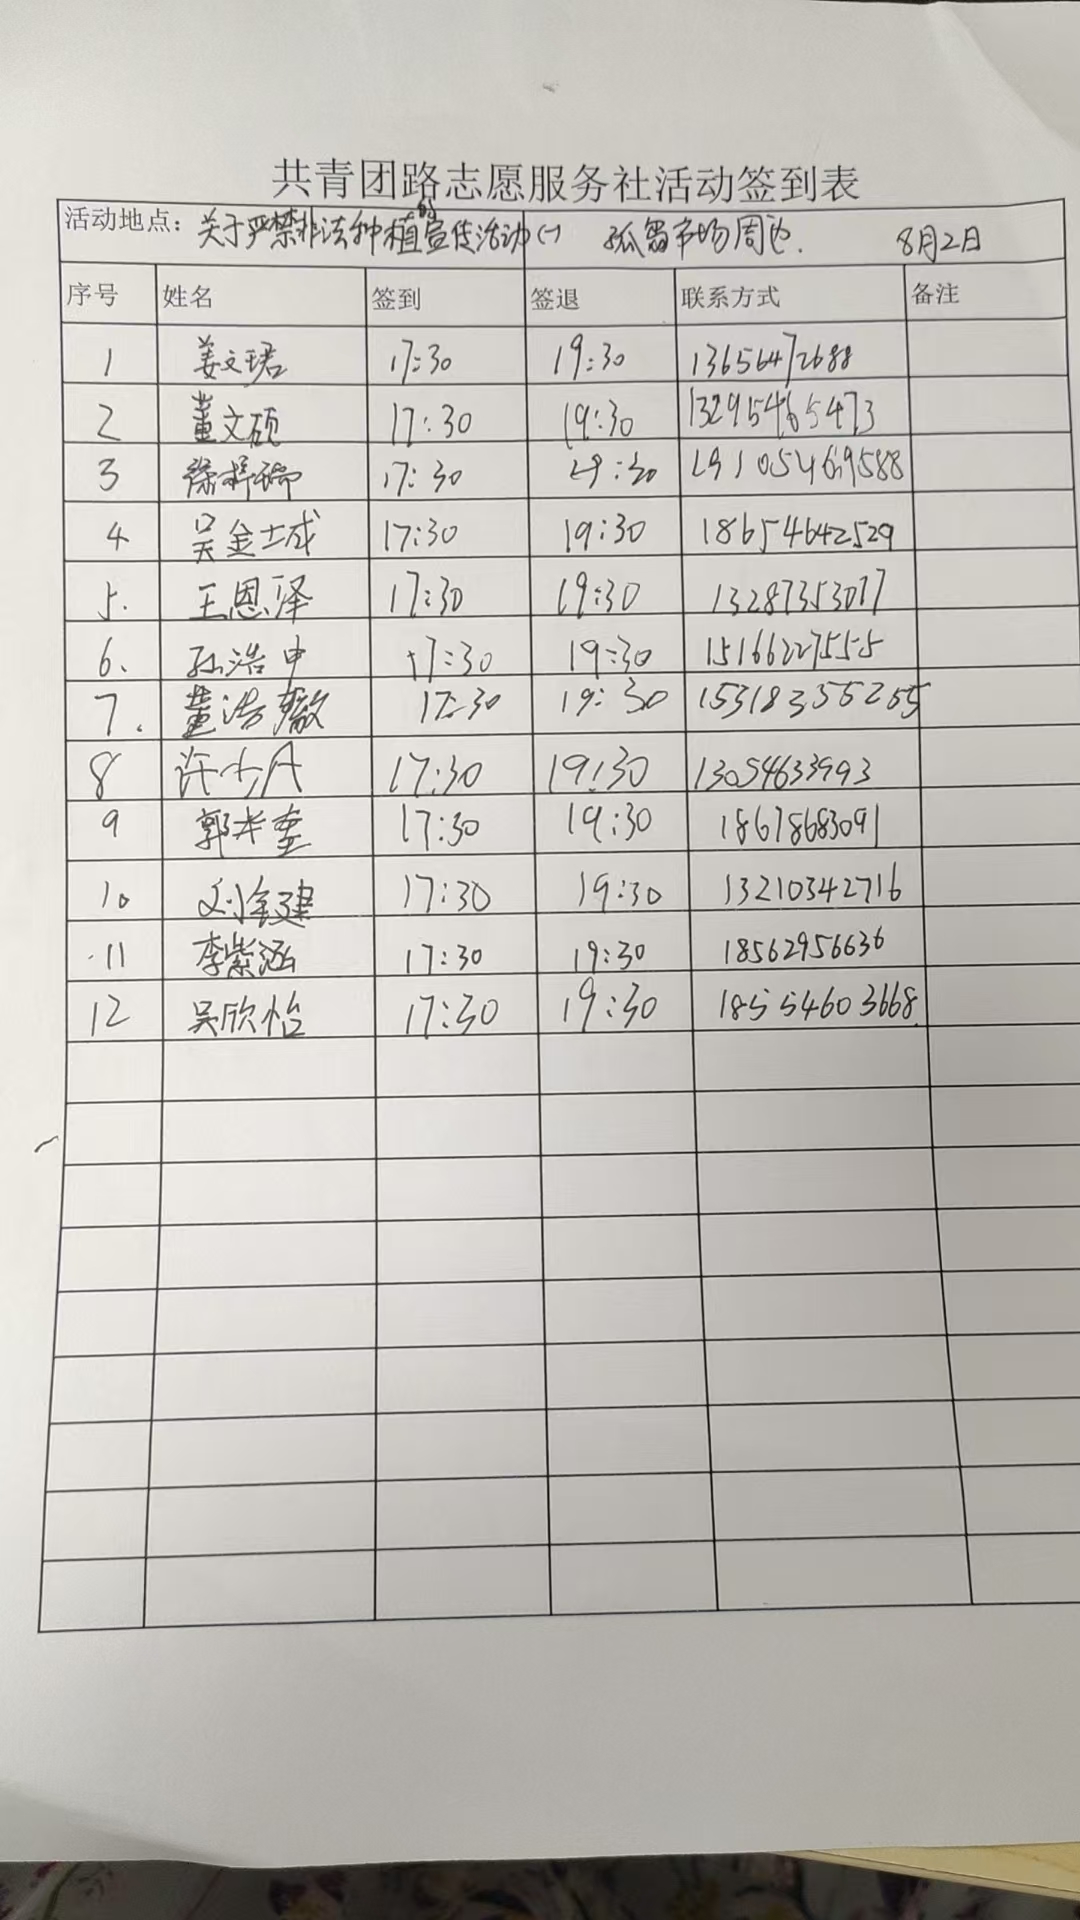 共青团路志愿服务社活动签到表
活动地点：关于严禁非法种植的宣传活动(一) 孤岛市场周边. 8月2日
序号 姓名 签到 签退 联系方式 备注
1 姜文珺 17:30 19:30 13656472688
2 董文硕 17:30 19:30 13295465473
3 徐梓瑞 17:30 19:30 19105469588
4 吴金城 17:30 19:30 18654642529
5. 王恩泽 17:30 19:30 13287353077
6. 孙浩申 17:30 19:30 15166227555
7. 董浩 17:30 19:30 15318355255
8 许 17:30 19:30 13054633993
9 郭 17:30 19:30 18678683091
10 刘金建 17:30 19:30 13210342716
11 李紫涵 17:30 19:30 18562956636
12 吴欣怡 17:30 19:30 18554603668